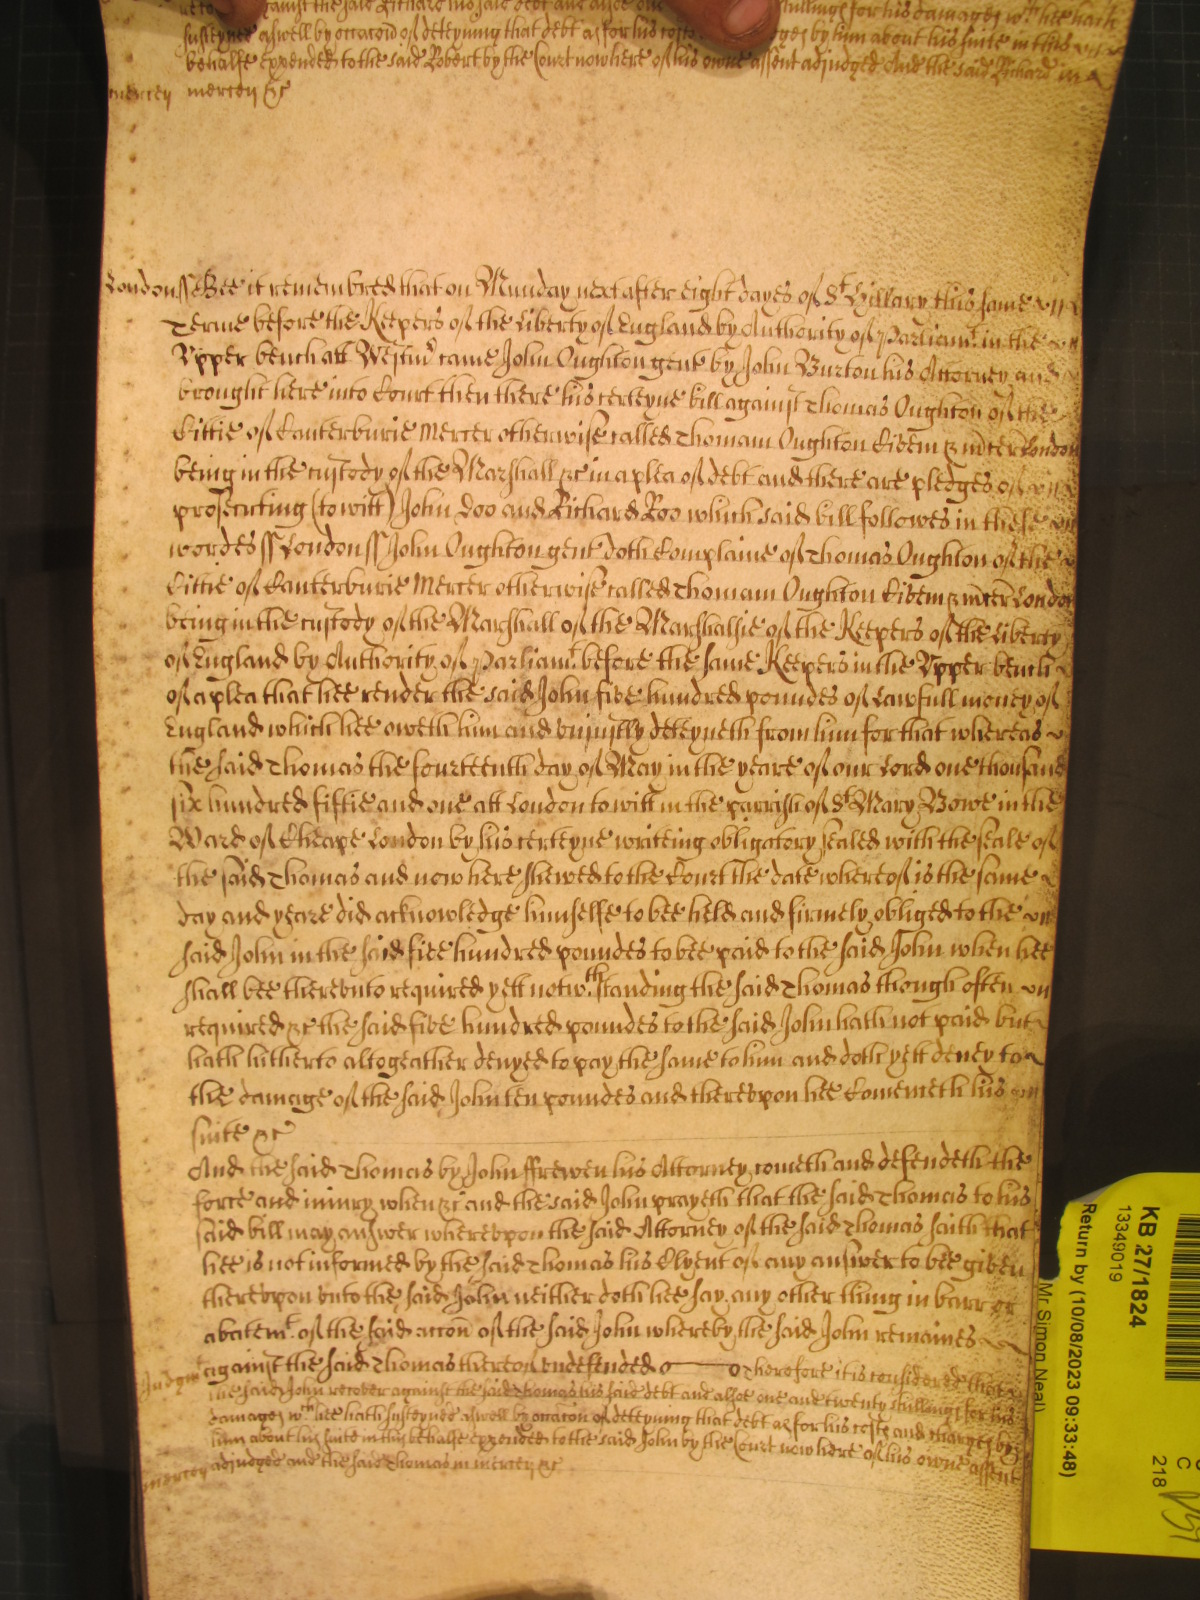 against the said Richard his said debt and alsoe one shillings for his damages wch hee hath
susteyned aswell by occacon of deteyning that debt as for his costs by him about his suite in this
behalfe expended to the said Robert by the Court now here of his owne assent adjudged And the said Richard in
mercy mercy &c
London ss Bee it remembred that on Munday next after eight dayes of St Hillary this same
Terme before the Keepers of the Liberty of England by Authority of Parliamt in the
Upper bench att Westmr came John Oughton gent by John Burton his Attorney and
brought here into Court then there his certeyne bill against Thomas Oughton of the
Cittie of Canterburie Mercer otherwise called Thomam Oughton Civem & mcer London
being in the custody of the Marshall &c in a plea of debt and there are pledges of
prosecuting (to witt) John Doo and Richard Roo which said bill followes in these
wordes ss London ss John Oughton gent doth Complaine of Thomas Oughton of the
Cittie of Canterburie Mercer otherwise called Thomam Oughton Civem & mcer London
being in the custody of the Marshall of the Marshallsie of the Keepers of the Liberty
of England by Authority of Parliamt before the same Keepers in the Upper bench
of a plea that hee render the said John five hundred poundes of Lawfull money of
England which hee oweth him and uniustly deteyneth from him for that whereas
the said Thomas the fourteenth day of May in the yeare of our Lord one thousand
six hundred fiftie and one att London to witt in the parrish of St Mary Bowe in the
Ward of Cheape London by his certeyne writeing obligatory sealed with the seale of
the said Thomas and now here shewed to the Court the date whereof is the same
day and yeare did acknowledge himselfe to bee held and firmely obliged to the
said John in the said five hundred poundes to bee paid to the said John when hee
shall bee thereunto required yett notwthstanding the said Thomas though often
required &c the said five hundred poundes to the said John hath not paid but
hath hitherto altogeather denyed to pay the same to him and doth yett deney to
the damage of the said John ten poundes and thereupon hee
his
suite &c
And the said Thomas by John ffrewen his Attorney cometh and defendeth the
force and iniury when &c and the said John prayeth that the said Thomas to his
said bill may answer whereupon the said Attorney of the said Thomas saith that
hee is not informed by the said Thomas his Clyent of any answer to bee given
thereupon unto the said John neither doth hee say any other thing in barr or
abatemt of the said accon of the said John whereby the said John remaines
Judgmt against the said Thomas thereon undefended Therefore it is considered that
the said John recover against the said Thomas his said debt and alsoe one and twenty shillings for his
damages wch hee hath susteyned aswell by occacon of deteyning that debt as for his costs and charges by
him about his suite in this behalfe expended to the said John by the Court now here of his owne assent
mercy adjudged and the said Thomas in mercy &c
KB 27/1824
13349019
Return by (10/08/2023 09:33:48)
Mr Simon Neal)
C
218